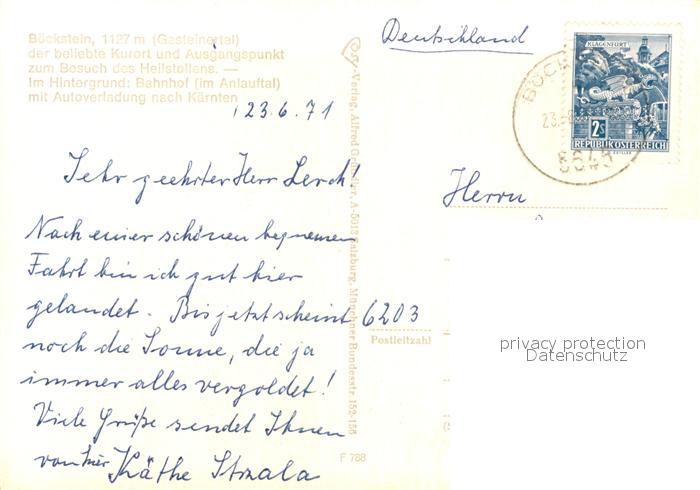 Böckstein, 1127 m (Gasteinertal)
der beliebte Kurort und Ausgangspunkt
zum Besuch des Heilstollens. —
Im Hintergrund: Bahnhof (im Anlauftal)
mit Autoverladung nach Kärnten
23.6.71
Sehr geehrter Herr Lerch!
Nach einer schönen bequemen
Fahrt bin ich gut hier
gelandet. Bis jetzt scheint
noch die Sonne, die ja
immer alles vergoldet!
Viele Grüße sendet Ihnen
von hier Käthe Strzala
-Verlag, Alfred A-5013 Salzburg, Münchner Bundesstr 152-156
F 788
Deutschland
KLAGENFURT
2S
REPUBLIK ÖSTERREICH
BÖCK
23.-6
Herrn
6203
Postleitzahl
privacy protection
Datenschutz